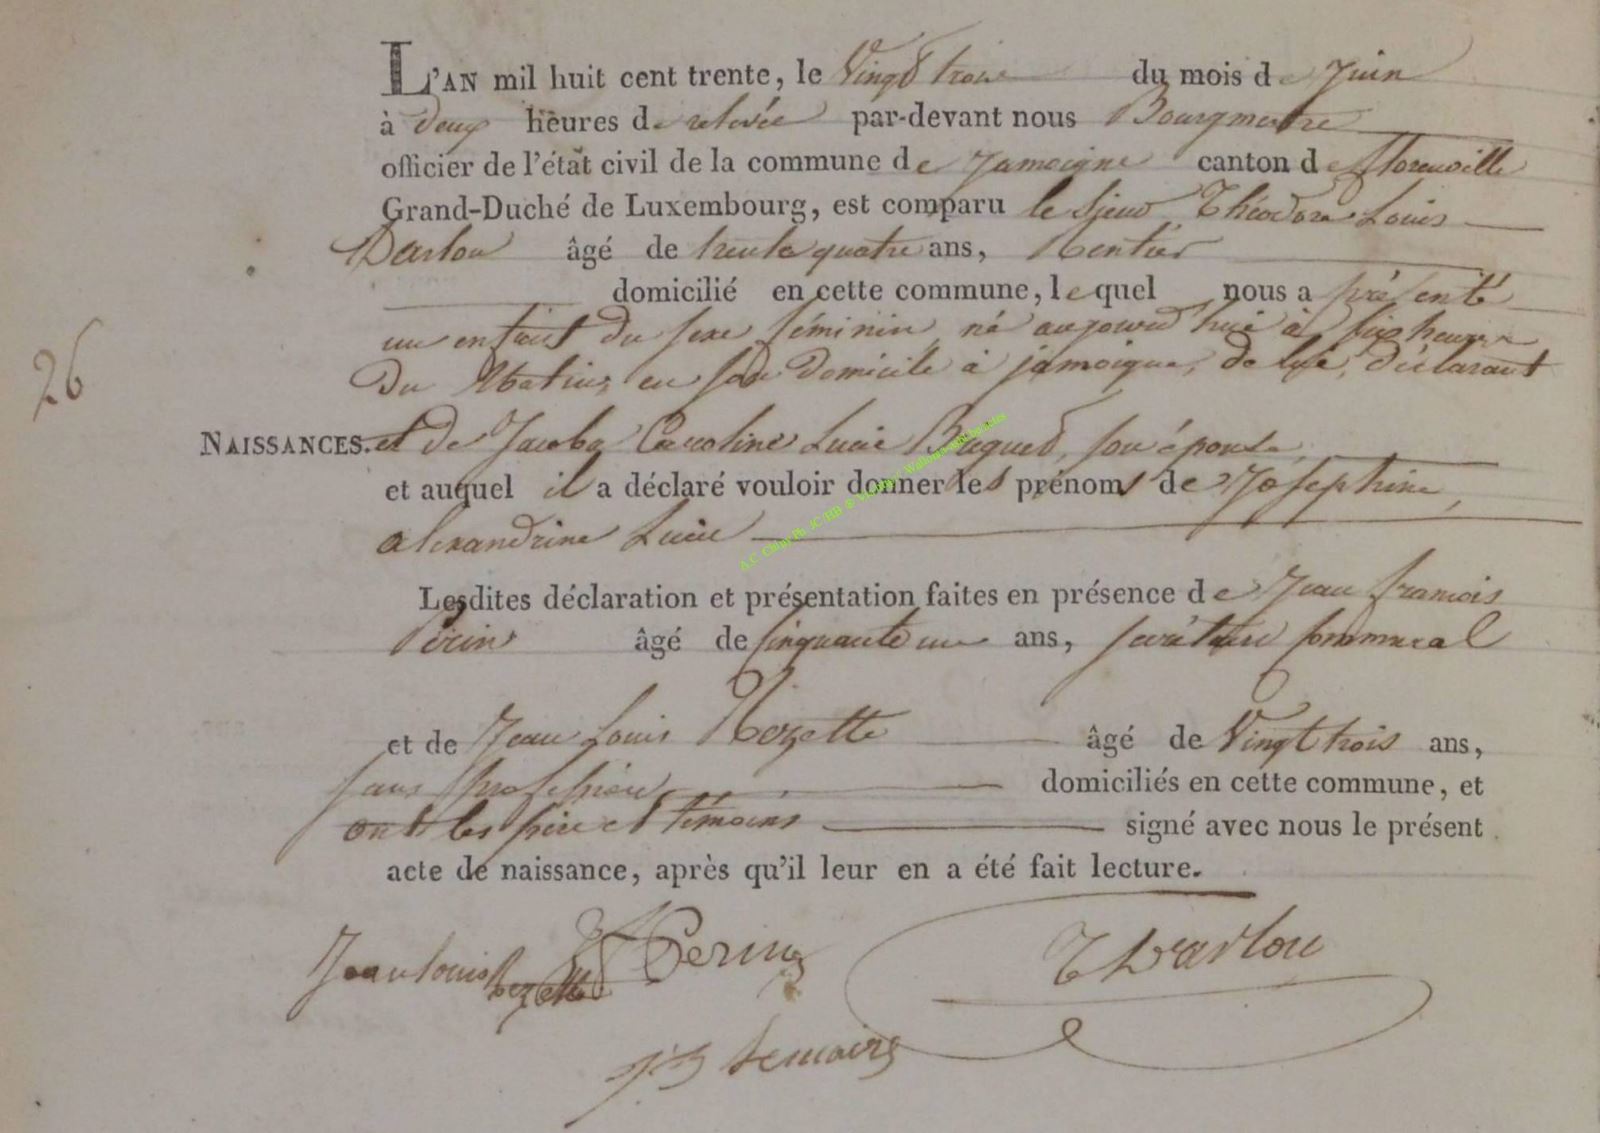 L'AN mil huit cent trente, le Vingt trois du mois de Juin
à deux heures de relevée par-devant nous Bourgmestre
officier de l'état civil de la commune de Jamoigne canton de florenville
Grand-Duché de Luxembourg, est comparu le Sieur Théodore Louis
Darlou âgé de trente quatre ans, Rentier
domicilié en cette commune, lequel nous a présenté
un enfant du sexe féminin, né aujourd'hui à six heures
Du Matin, en son domicile à jamoigne, de lui, déclarant
26
NAISSANCES. et de Jacoba Caroline Lucie son épouse,
et auquel il a déclaré vouloir donner les prénoms de Joséphine,
alexandrine Lucie
A.C. Chiny Ph. JC/HB
Lesdites déclaration et présentation faites en présence de Jean francois
Perin âgé de cinquante un ans, secrétaire communal
et de Jean Louis Rozette âgé de Vingt trois ans,
sans profession domiciliés en cette commune, et
ont les père et témoins signé avec nous le présent
acte de naissance, après qu'il leur en a été fait lecture.
Jean louis Rozette Perin T Darlou
JB Lemaire